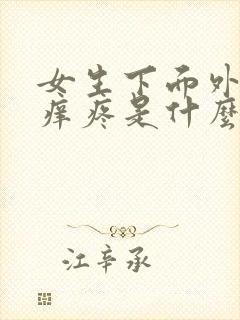 女生下而外
痒疼是什麼
江辛承